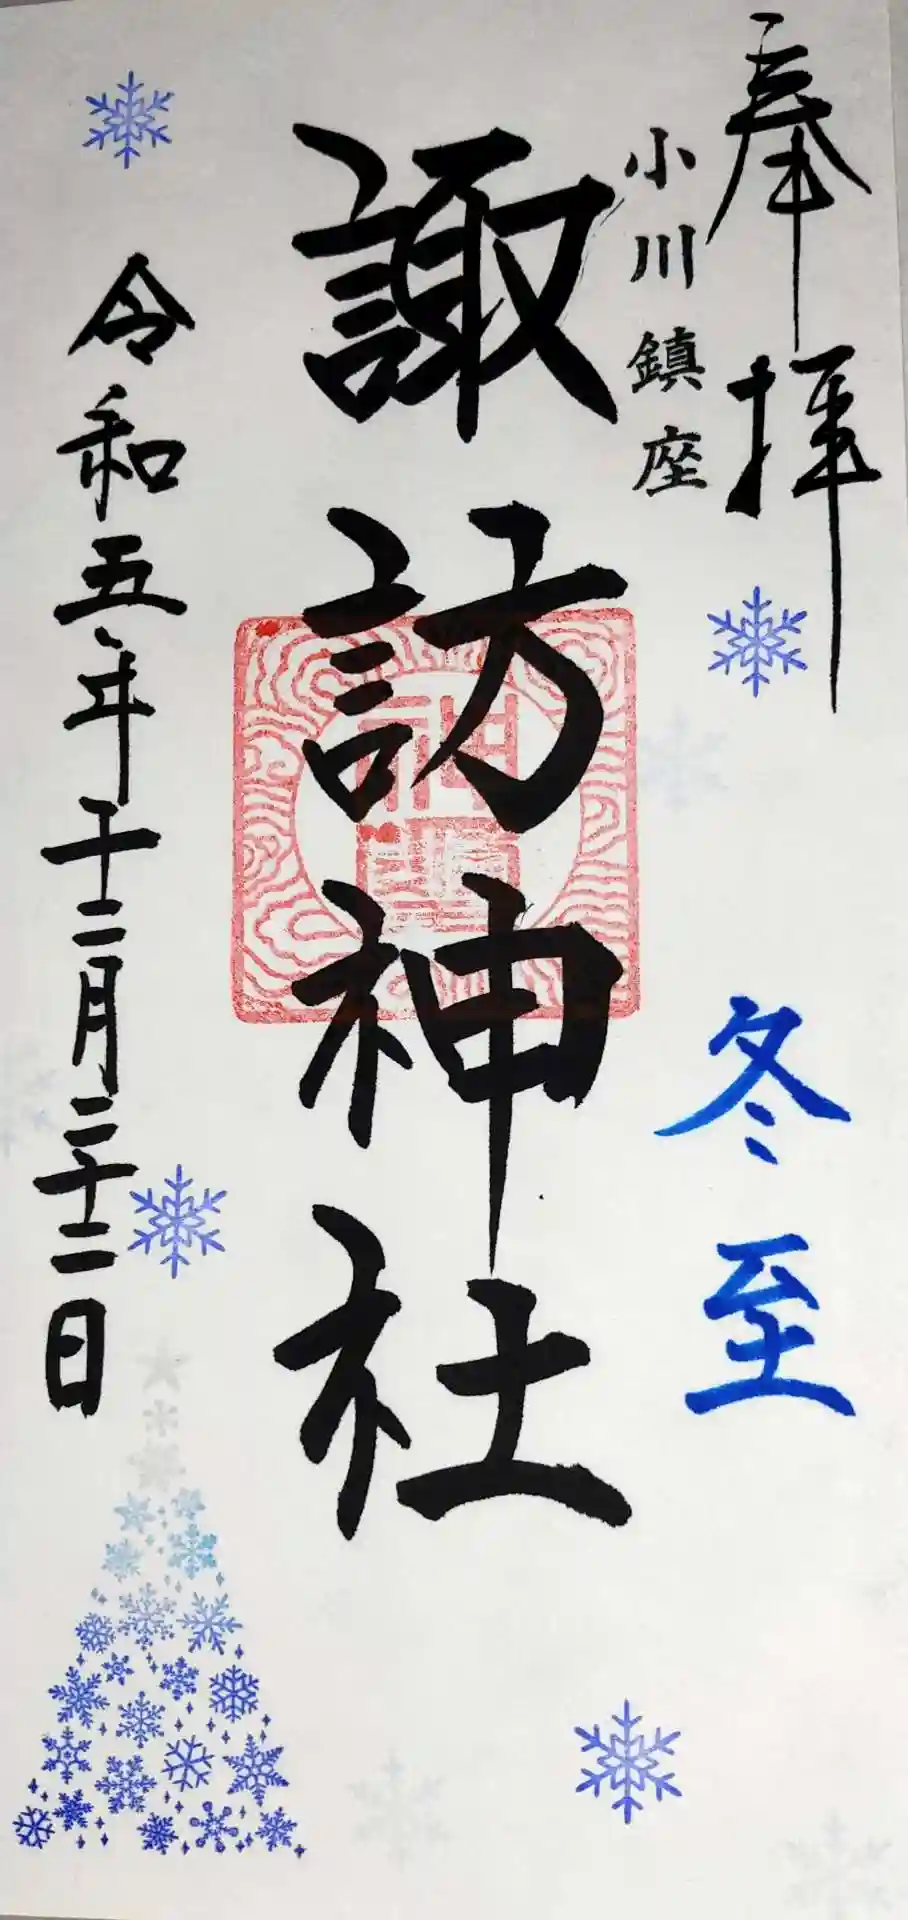 奉拝
小川鎮座
冬至
諏訪神社
令和五年十二月二十二日